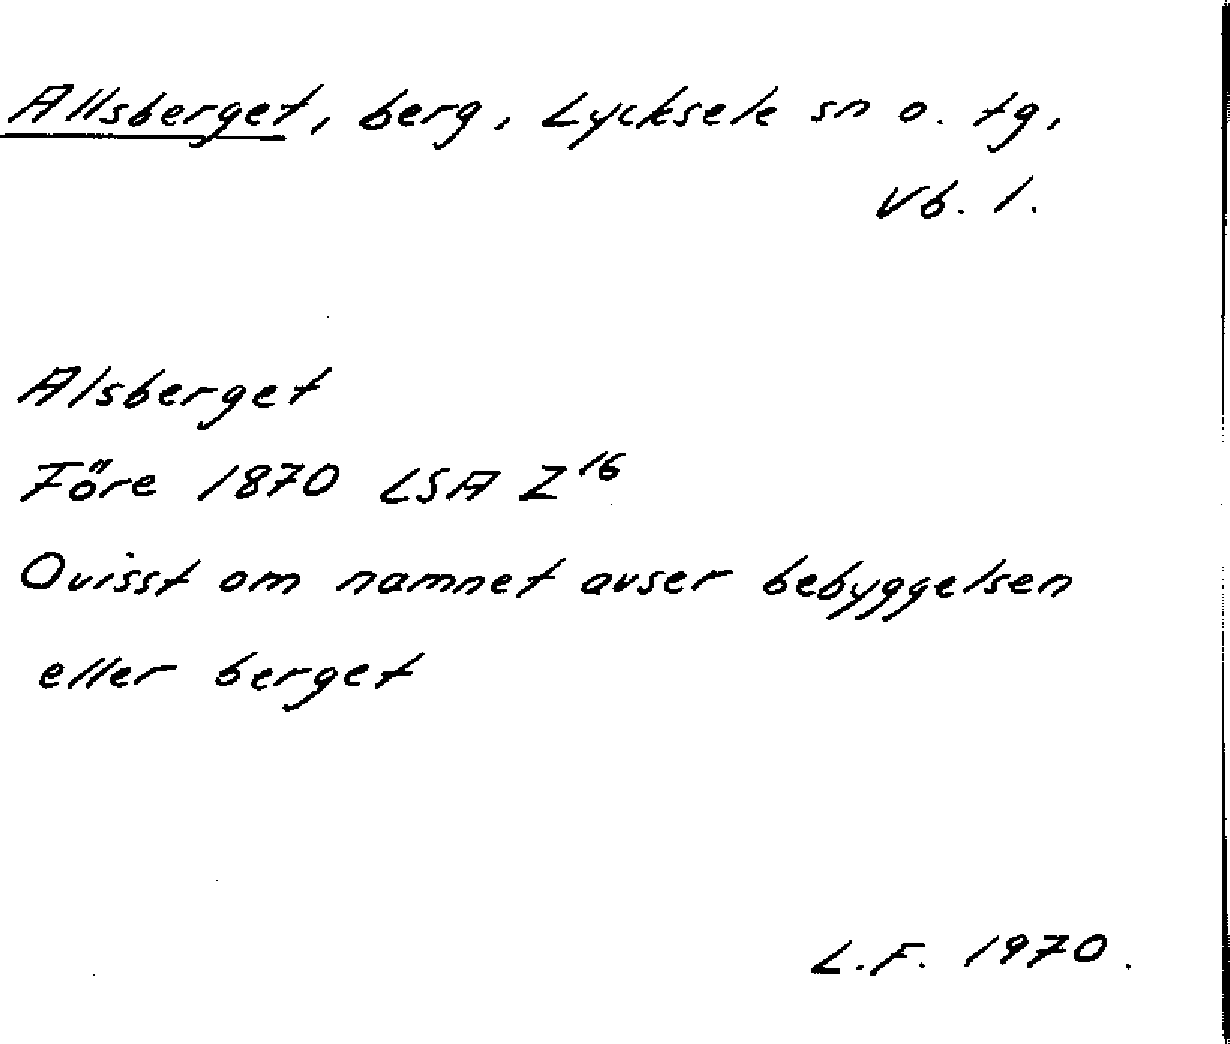 Allsberget, berg, Lycksele sn o. tg,
Vb. l.
Alsberget
Före 1870 LSA Z¹⁶
Ovisst om namnet avser bebyggelsen
eller berget
L.F. 1970.